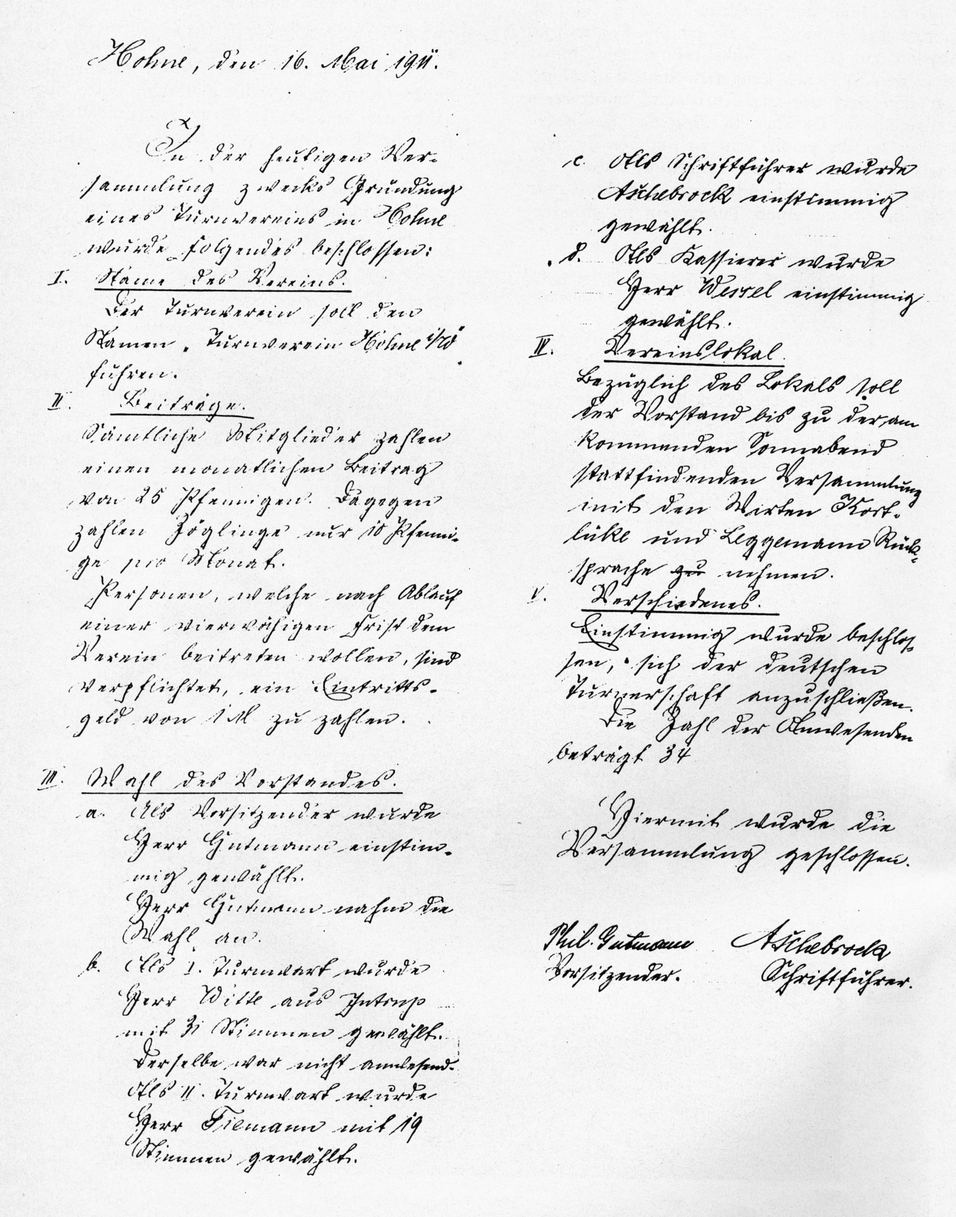 Hohne, den 16. Mai 1911.
In der heutigen Ver-
sammlung zwecks Gründung
eines Turnvereins in Hohne
wurde folgendes beschlossen:
I. Name des Vereins.
Der Turnverein soll den
Namen „Turnverein Hohne
führen.
II. Beiträge.
Sämtliche Mitglieder zahlen
einen monatlichen Beitrag
von 25 Pfennigen. Dagegen
zahlen Zöglinge nur 10 Pfenni-
ge pro Monat.
Personen, welche nach Ablauf
einer vierwöchigen Frist dem
Verein beitreten wollen, sind
verpflichtet, ein Eintritts-
geld von 1 M zu zahlen.
III. Wahl des Vorstandes.
a. Als Vorsitzender wurde
Herr Gutmann einstim-
mig gewählt.
Herr Gutmann nahm die
Wahl an.
b. Als I. Turnwart wurde
Herr Witte aus Intrup
mit 31 Stimmen gewählt.
Derselbe war nicht anwesend.
Als II. Turnwart wurde
Herr Tiemann mit 19
Stimmen gewählt.
c. Als Schriftführer wurde
Aschebrock einstimmig
gewählt.
d. Als Kassierer wurde
Herr Wessel einstimmig
gewählt.
IV. Vereinslokal.
Bezüglich des Lokals soll
der Vorstand bis zu der am
kommenden Sonnabend
stattfindenden Versammlung
mit den Wirten Kort-
lüke und Leggemann Rück-
sprache zu nehmen.
V. Verschiedenes.
Einstimmig wurde beschlos
sen, sich der deutschen
Turnerschaft anzuschließen.
Die Zahl der Anwesenden
beträgt 34
Hiermit wurde die
Versammlung geschlossen.
Phil. Gutmann Aschebrock
Vorsitzender. Schriftführer.